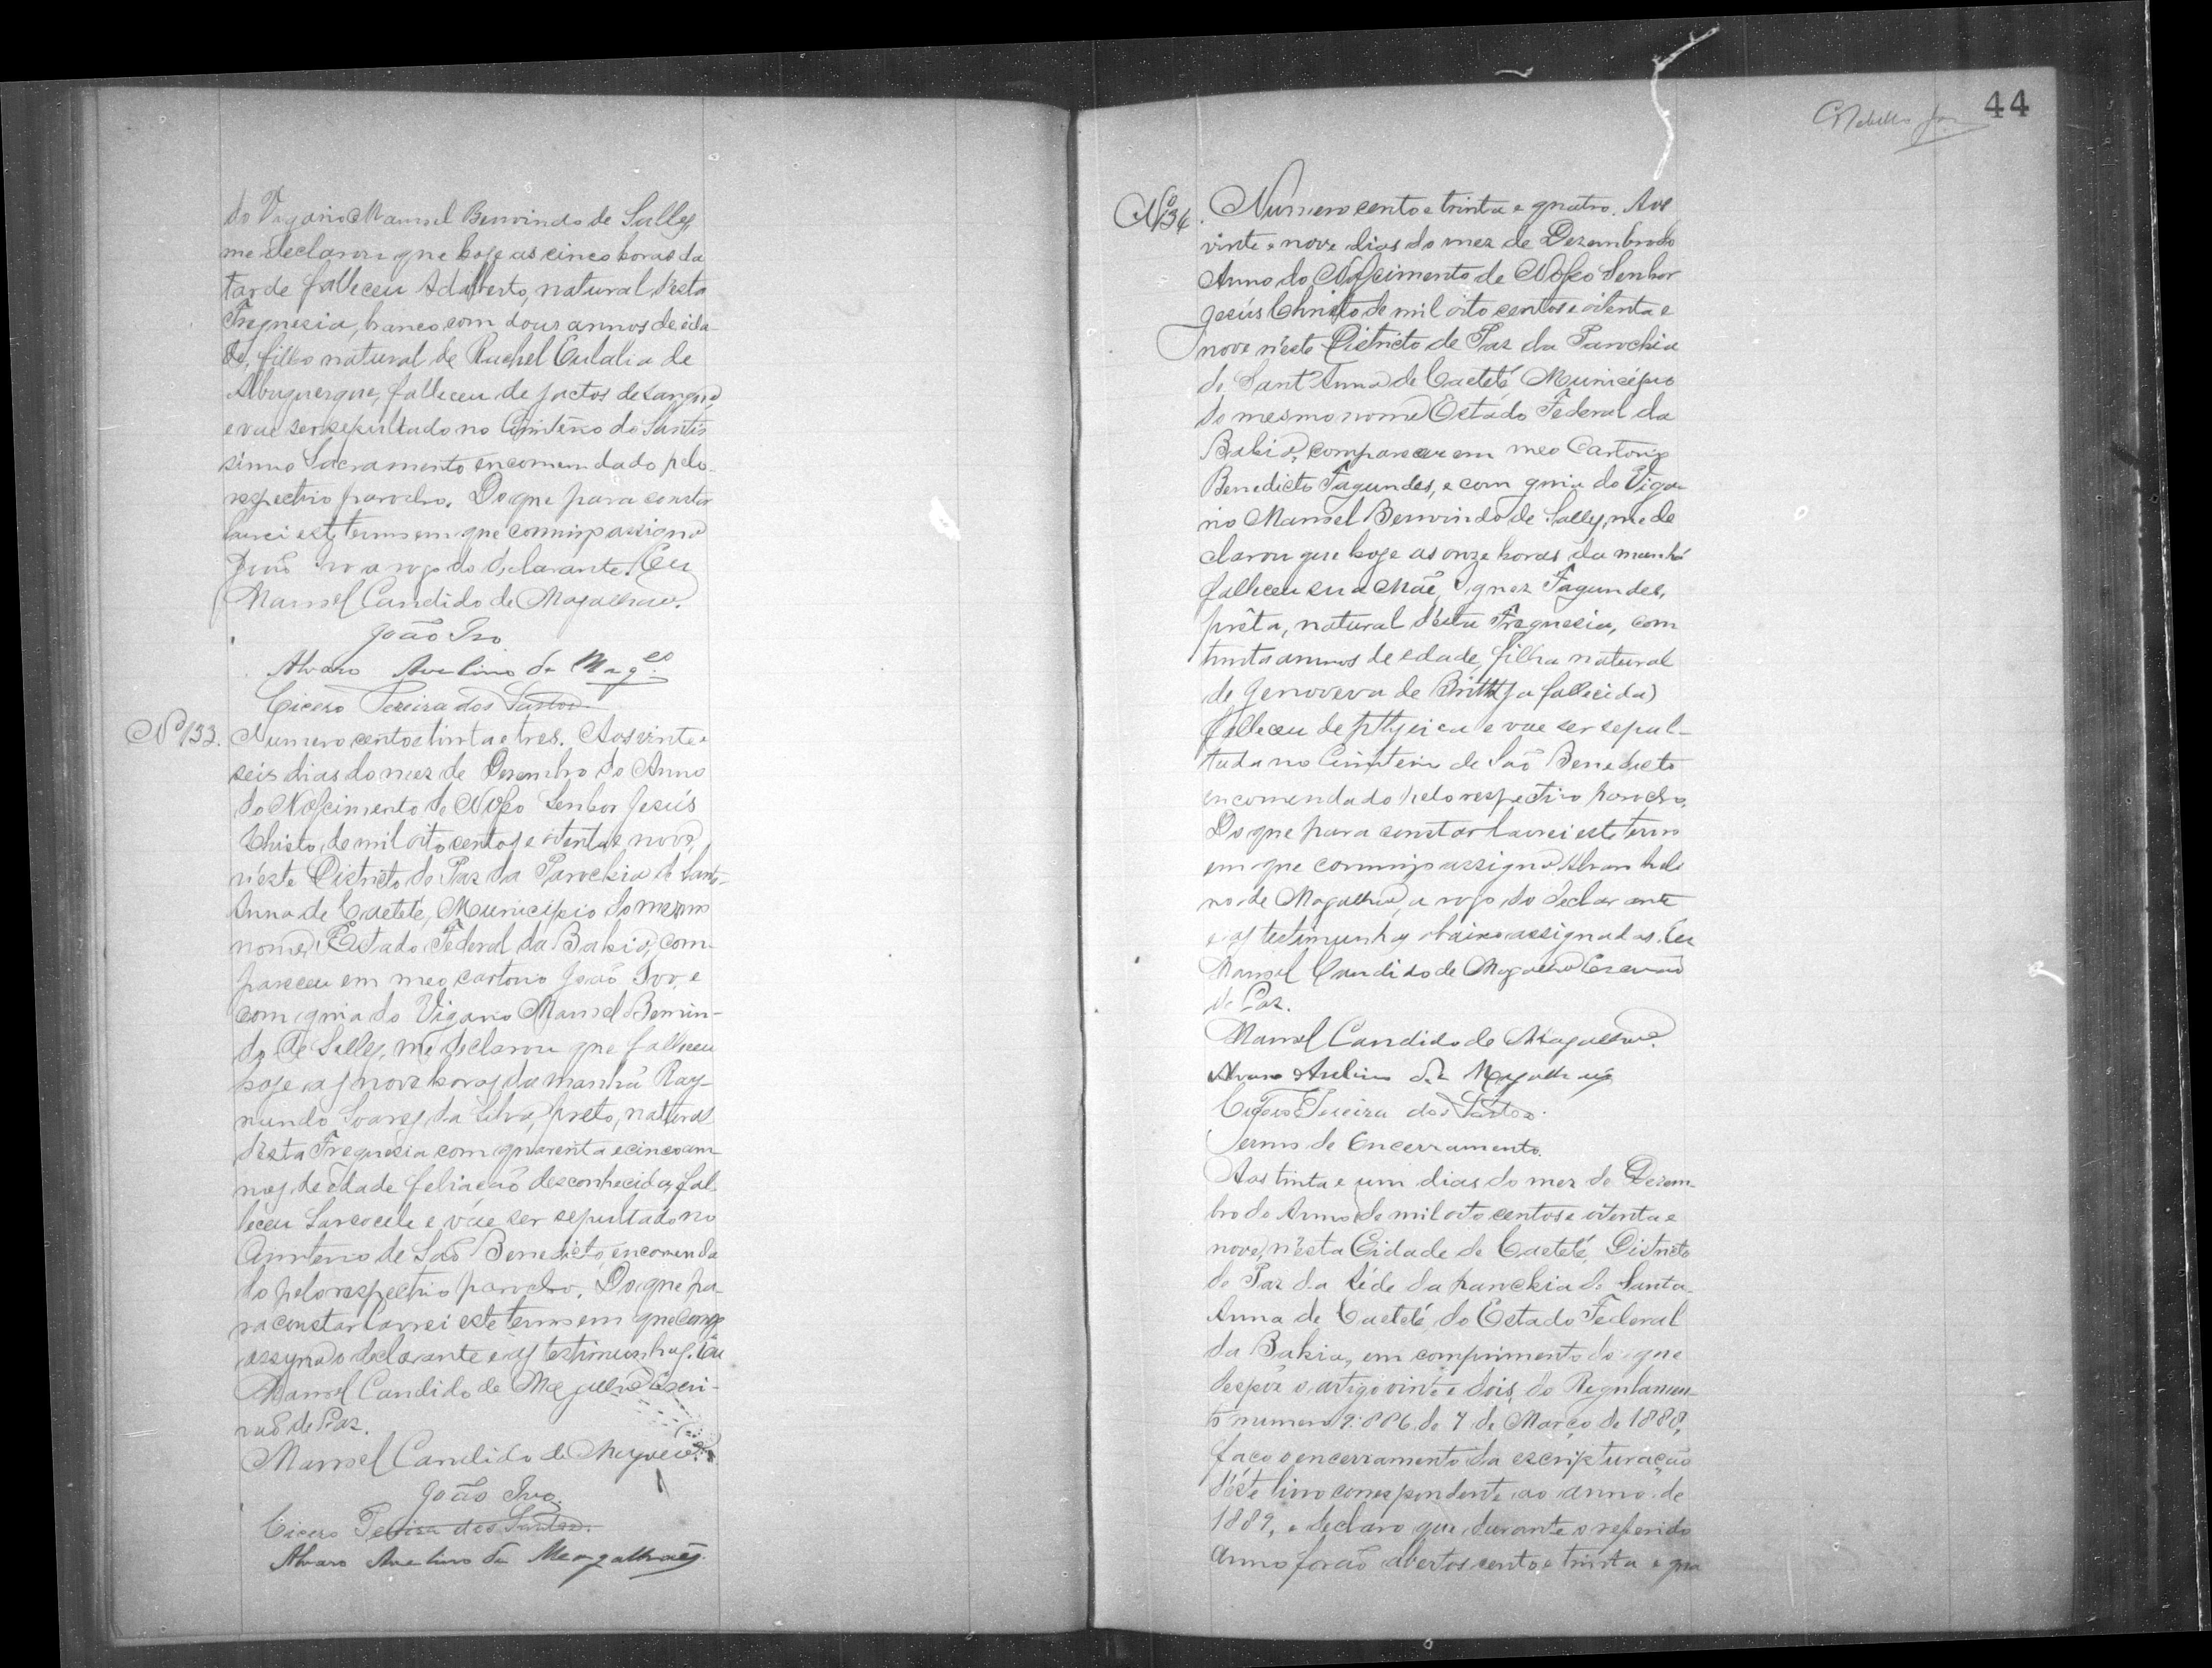 do Vigario Manoel Bemvindo de Salles,
me declarou que hoje as cinco horas da
tarde falleceu Adalberto, natural desta
Freguesia, branco com dous annos de eda-
de, filho natural de Rachel Eulalia de
Albuquerque, falleceu de jactos de sangue,
e vae ser sepultado no Cimiterio do Santis
simo Sacramento encomendado pelo
respectivo parocho. Do que para constar
lavrei este termo em que commigo assigna
João Ivo a rogo do declarante. Eu
Manoel Candido de Magalhães.
João Ivo
Alvaro Avelino de Mag.es
Cicero Pereira dos Santos
Nº 133. Numero cento e trinta e tres. Aos vinte e
seis dias do mez de Dezembro do Anno
do Nascimento de Nosso Senhor Jesús
Christo, de mil oito centos e oitenta e nove,
n'éste Districto de Paz da Parochia de Sant-
Anna de Caeteté, Municipio do mesmo
nome, Estado Federal da Bahia, com-
pareceu em meo cartorio João Ivo, e
com guia do Vigario Manoel Bemvin-
do de Salles, me declarou que falleceu
hoje as nove horas da manhã Ray-
mundo Soares da Silva, preto, natural
desta Freguesia com quarenta e cinco an-
nos de edade filiação desconhecida, fal-
leceu Sarcocele e váe ser sepultado no
Cimiterio de São Benedicto, encomenda
do pelo respectivo parocho. Do que pa-
ra constar lavrei este termo em que comigo
assigna o declarante e as testimunhas. Eu
Manoel Candido de Magalhães Escri-
vão de Paz.
Manoel Candido de Magalhães.
João Ivo.
Cicero Pereira dos Santos.
Alvaro Avelino de Magalhães.
44
Nº 134. Numero cento e trinta e quatro. Aos
vinte e nove dias do mez de Dezembro do
Anno do Nascimento de Nosso Senhor
Jesús Christo de mil oito centos e oitenta e
nove n'éste Districto de Paz da Parochia
de Sant'Anna de Caeteté Municipio
do mesmo nome Estádo Federal da
Bahia, compareceu em meo Cartorio
Benedicto Fagundes, e com guia do Viga-
rio Manoel Bemvindo de Salles, me de
clarou que hoje as onze horas da manhã
falleceu sua Mãe, Ignez Fagundes,
prêta, natural d'ésta Freguesia, com
trinta annos de edade, filha natural
de Genoveva de Britto (ja fallecida)
falleceu de phtysica e vae ser sepul-
tada no Cimiterio de São Benedicto
encomendado pelo respectivo parocho.
Do que para constar lavrei este termo
em que commigo assigna Alvaro Aveli
no de Magalhães, a rogo do declarante
e as testimunhas abaixo assignadas. Eu
Manoel Candido de Magalhães Escrivão
de Paz.
Manoel Candido de Magalhães.
Alvaro Avelino de Magalhães
Cicero Pereira dos Santos.
Termo de Encerramento.
Aos trinta e um dias do mez de Dezem-
bro do Anno de mil oito centos e oitenta e
nove, n'ésta Cidade de Caeteté, Districto
de Paz da Séde da parochia de Santa
Anna de Caeteté, do Estado Federal
da Bahia, em comprimento do que
despõe o artigo vinte e dois, do Regulamen-
to numero 9:886 de 7 de Março de 1888,
faço o encerramento da escripturação
d'éste livro correspondente ao anno de
1889, e declaro que durante o referido
Anno forão abertos cento e trinta e qua